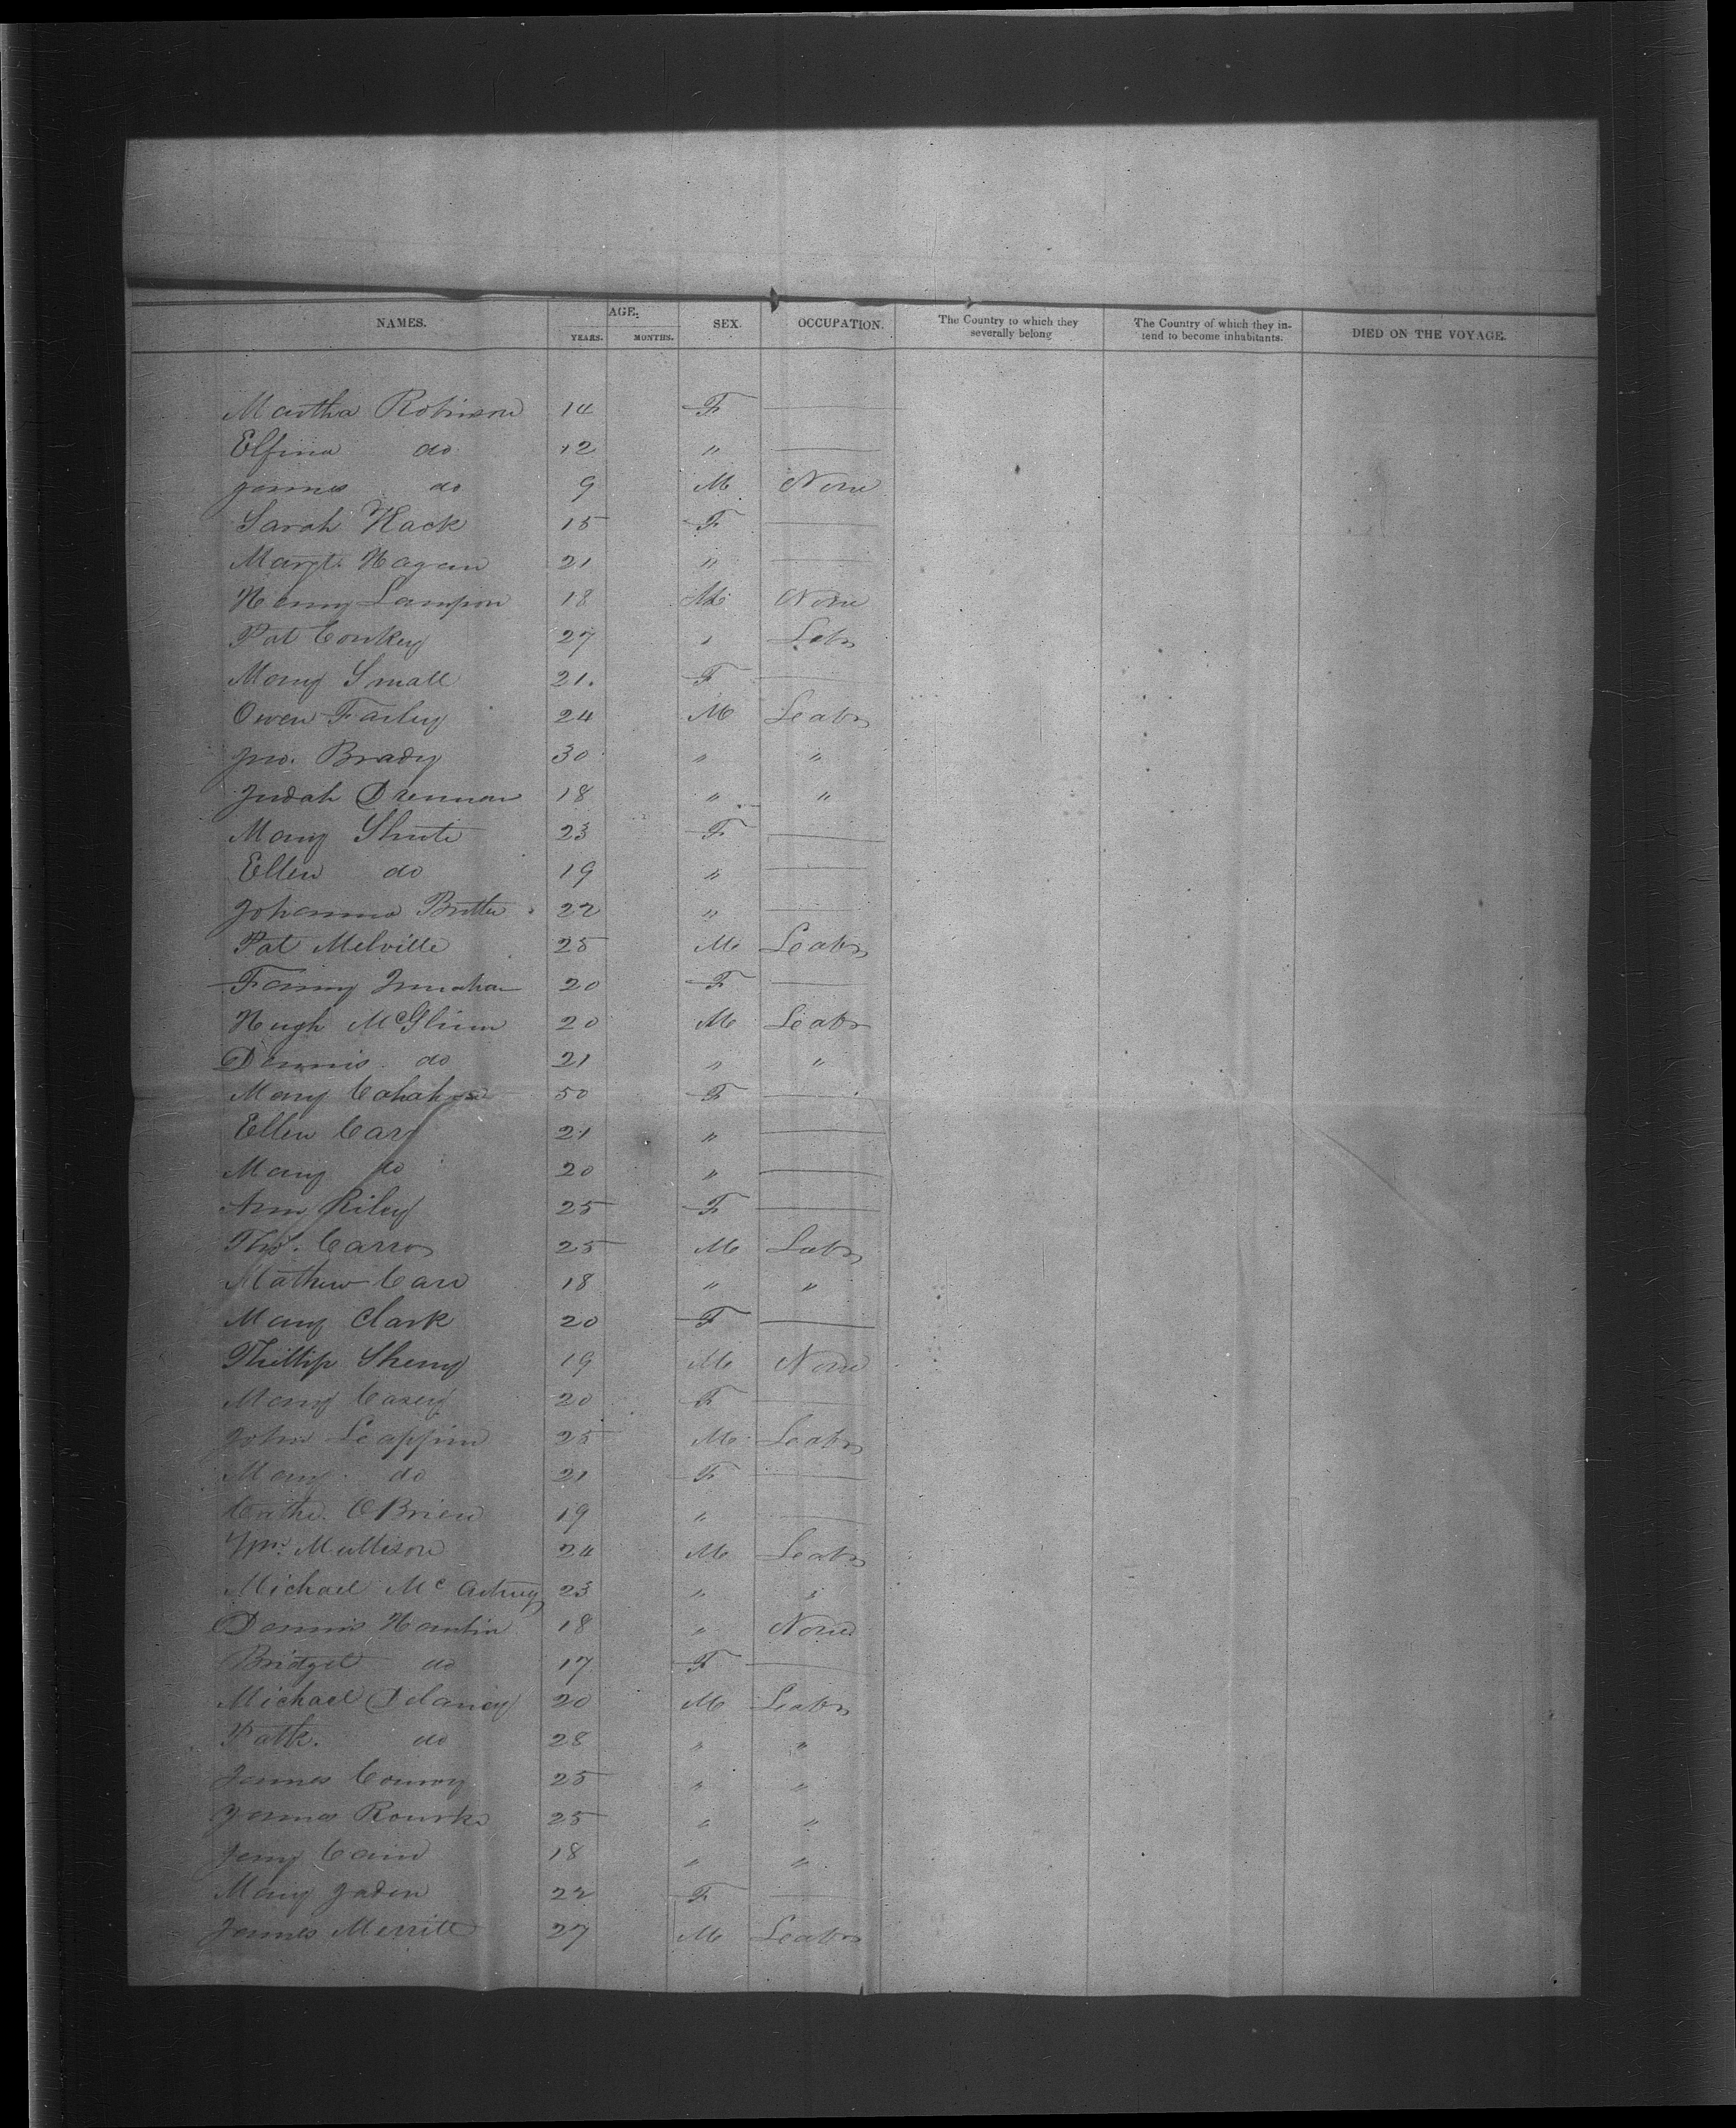 NAMES. AGE. YEARS. MONTHS. SEX. OCCUPATION. The Country to which they severally belong The Country of which they intend to become inhabitants. DIED ON THE VOYAGE.
Martha Robinson 14 F —
Elfina do 12 " —
James do 9 M None
Sarah Hack 15 F —
Margt. Hagan 21 " —
Henry Lampon 18 M None
Pat Conkey 27 " Labr
Mary Small 21. F —
Owen Farley 24 M Leabr
Jno. Brady 30 " "
Judah Drennan 18 " "
Mary Shute 23 F —
Ellen do 19 " —
Johanna Butler 22 " —
Pat Melville 25 M Leabr
Fanny 20 F —
Hugh McGlinn 20 M Leabr
Dennis do 21 " "
Mary 50 F —
Ellen Carr 21 " —
Mary do 20 " —
Ann Riley 25 F —
Thos. Carron 25 M Labr
Mathew Carr 18 " "
Mary Clark 20 F —
Phillip 19 M None
Mary Casey 20 F —
John Leappin 25 M Leabr
Mary do 21 F —
Cathe. OBrien 19 " —
Wm. Mullison 24 M Leabr
Michael Mc 23 " "
Dennis Hanlin 18 " None
Bridget do 17 F —
Michael Delaney 20 M Leabr
Patk. do 28 " "
James Conroy 25 " "
James Rourke 25 " "
Jerry Cain 18 " "
Mary Jaden 22 F —
James Merrill 27 M Leabr